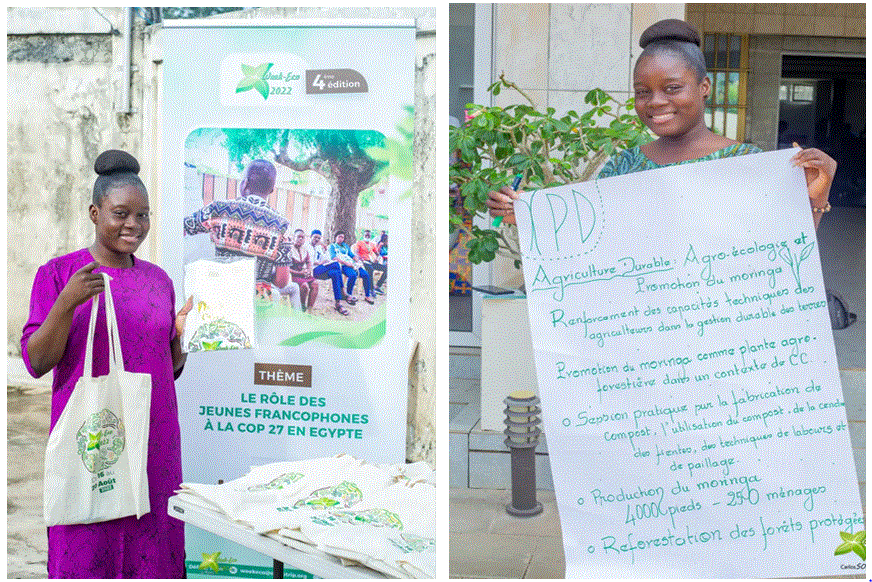 Week-Eco
2022
4ème édition
THÈME
LE RÔLE DES
JEUNES FRANCOPHONES
À LA COP 27 EN EGYPTE
Août
Agriculture Durable : Agro-écologie et
Promotion du moringa
Renforcement des capacités techniques des
agriculteurs dans la gestion durable des terres
Promotion du moringa comme plante agro-
forestière dans un contexte de CC.
o Session pratique sur la fabrication de
compost, l'utilisation du compost, de la cendre
des fientes, des techniques de labours et
de paillage.
o Production du moringa
4000 pieds - 250 ménages
o Reforestation des forêts protégées
Carlos SO